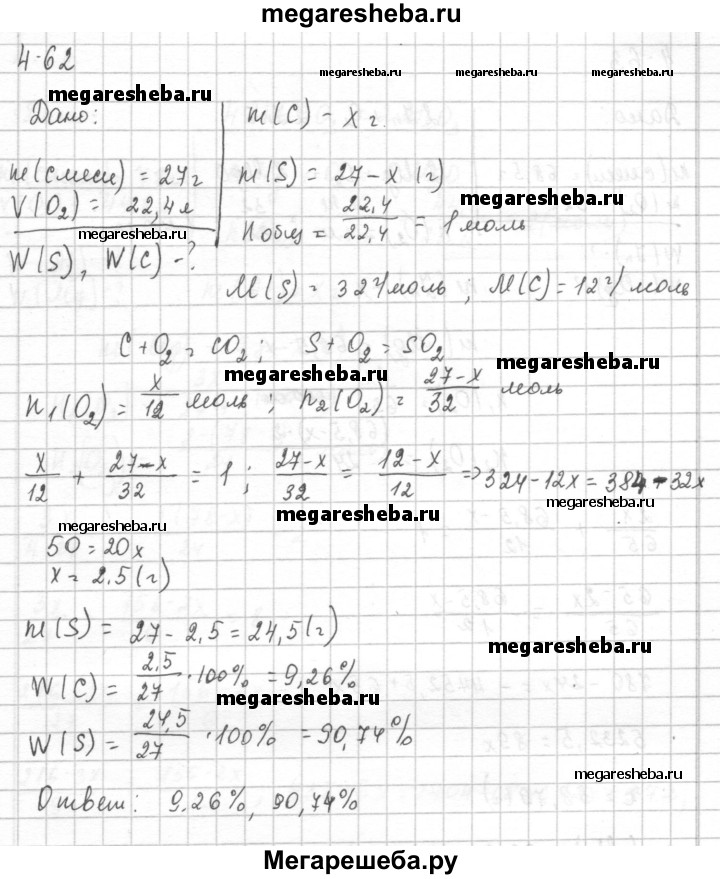 megaresheba.ru
4-62
megaresheba.ru megaresheba.ru megaresheba.ru
megaresheba.ru
Дано:
m(C) - x г.
m(смеси) = 27г
m(S) = 27-x (г)
megaresheba.ru
V(O₂) = 22,4л
n общ = 22,4/22,4 = 1 моль
megaresheba.ru
W(S), W(C) - ?
M(S) = 32 г/моль ; M(C) = 12 г/моль
C + O₂ = CO₂ ; S + O₂ = SO₂
megaresheba.ru megaresheba.ru
n₁(O₂) = x/12 моль ; n₂(O₂) = 27-x/32 моль
x/12 + 27-x/32 = 1 ; 27-x/32 = 12-x/12 => 324-12x = 384-32x
megaresheba.ru
megaresheba.ru
megaresheba.ru
50 = 20x
x = 2,5 (г)
m(S) = 27 - 2,5 = 24,5 (г)
megaresheba.ru
W(C) = 2,5/27 · 100% = 9,26%
megaresheba.ru
W(S) = 24,5/27 · 100% = 90,74%
megaresheba.ru
Ответ: 9,26%, 90,74%
Мегарешеба.ру